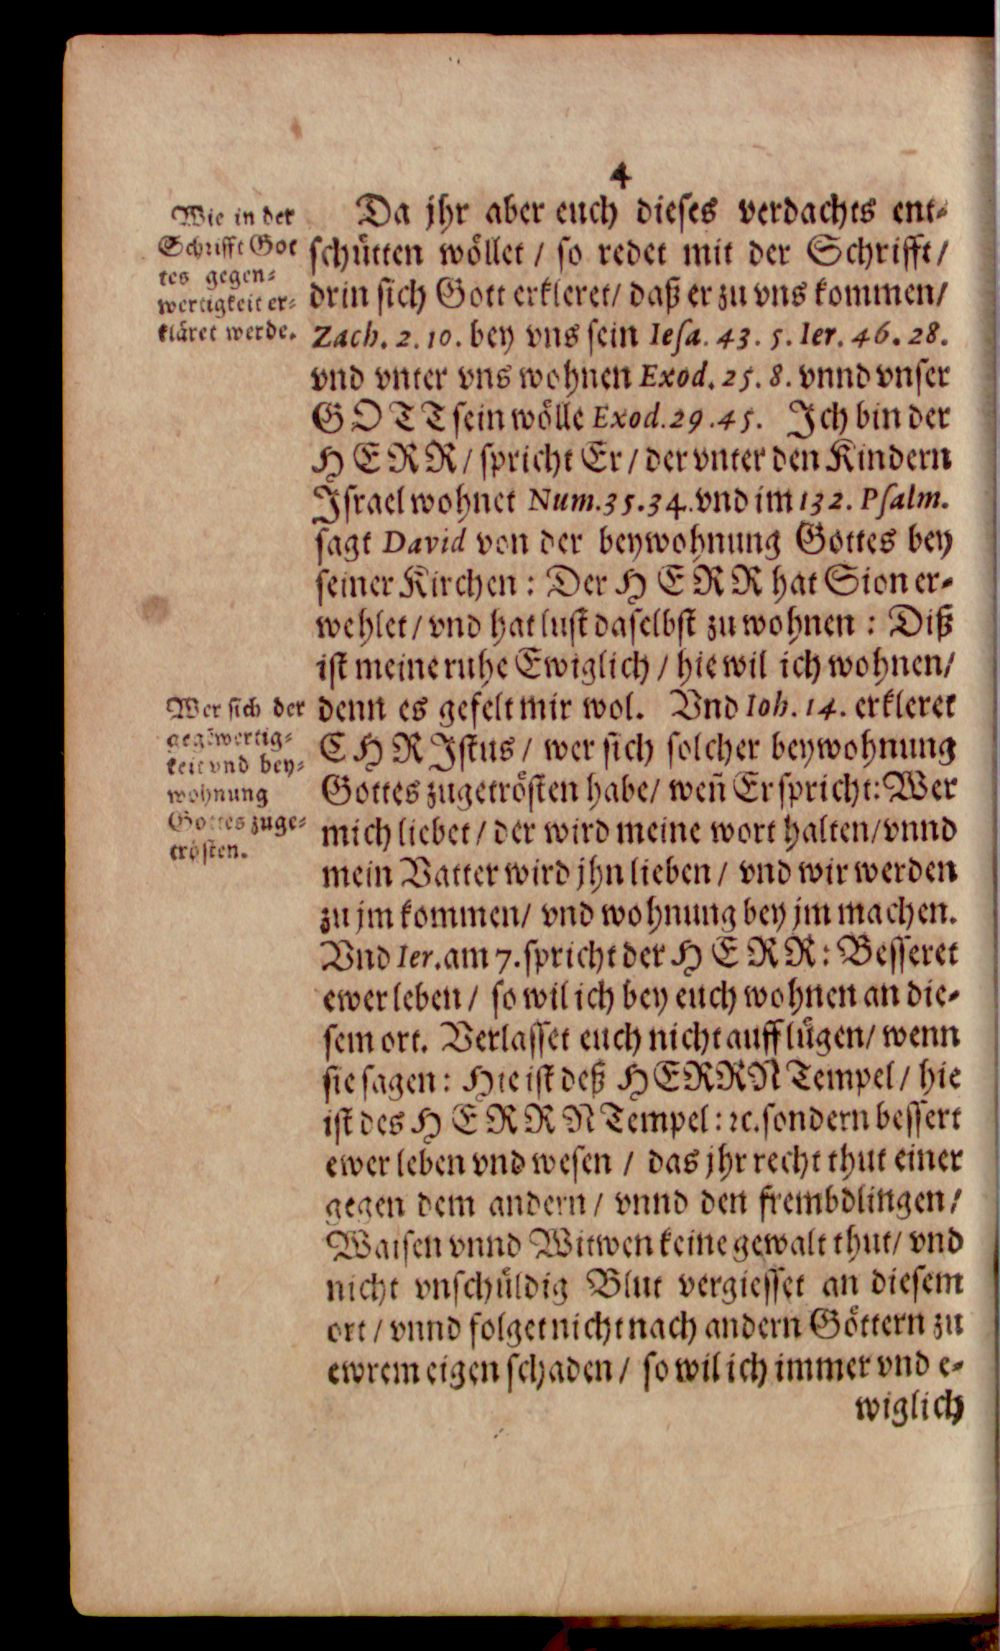 4
Wie in der
Schrifft Got
tes gegen-
wertigkeit er-
kläret werde.
Da jhr aber euch dieses verdachts ent-
schütten wöllet / so redet mit der Schrifft /
drin sich Gott erkleret / daß er zu vns kommen /
Zach. 2. 10. bey vns sein Iesa. 43. 5. Ier. 46. 28.
vnd vnter vns wohnen Exod. 25. 8. vnnd vnser
GOTT sein wölle Exod. 29. 45. Ich bin der
HERR / spricht Er / der vnter den Kindern
Israel wohnet Num. 35. 34. vnd im 132. Psalm.
sagt David von der beywohnung Gottes bey
seiner Kirchen : Der HERR hat Sion er-
wehlet / vnd hat lust daselbst zu wohnen : Diß
ist meine ruhe Ewiglich / hie wil ich wohnen /
denn es gefelt mir wol. Vnd Ioh. 14. erkleret
CHRIstus / wer sich solcher beywohnung
Gottes zugetrösten habe / weñ Er spricht: Wer
mich liebet / der wird meine wort halten / vnnd
mein Vatter wird jhn lieben / vnd wir werden
zu jm kommen / vnd wohnung bey jm machen.
Vnd Ier. am 7. spricht der HERR: Besseret
ewer leben / so wil ich bey euch wohnen an die-
sem ort. Verlasset euch nicht auff lügen / wenn
sie sagen: Hie ist deß HERRN Tempel / hie
ist des HERRN Tempel: ꝛc. sondern bessert
ewer leben vnd wesen / das jhr recht thut einer
gegen dem andern / vnnd den frembdlingen /
Waisen vnnd Witwen keine gewalt thut / vnd
nicht vnschüldig Blut vergiesset an diesem
ort / vnnd folget nicht nach andern Göttern zu
ewrem eigen schaden / so wil ich immer vnd e-
wiglich
Wer sich der
gegēwertig-
keit vnd bey-
wohnung
Gottes zuge-
trösten.